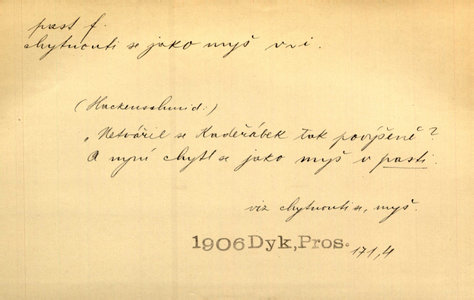 past f.
chytnouti se jako myš v~i.
(Hackenschmid:)
„Netvářil se Kadeřábek tak povýšeně?
A nyní chytl se jako myš v pasti.
viz chytnouti se, myš.
1906 Dyk, Pros. 171,4